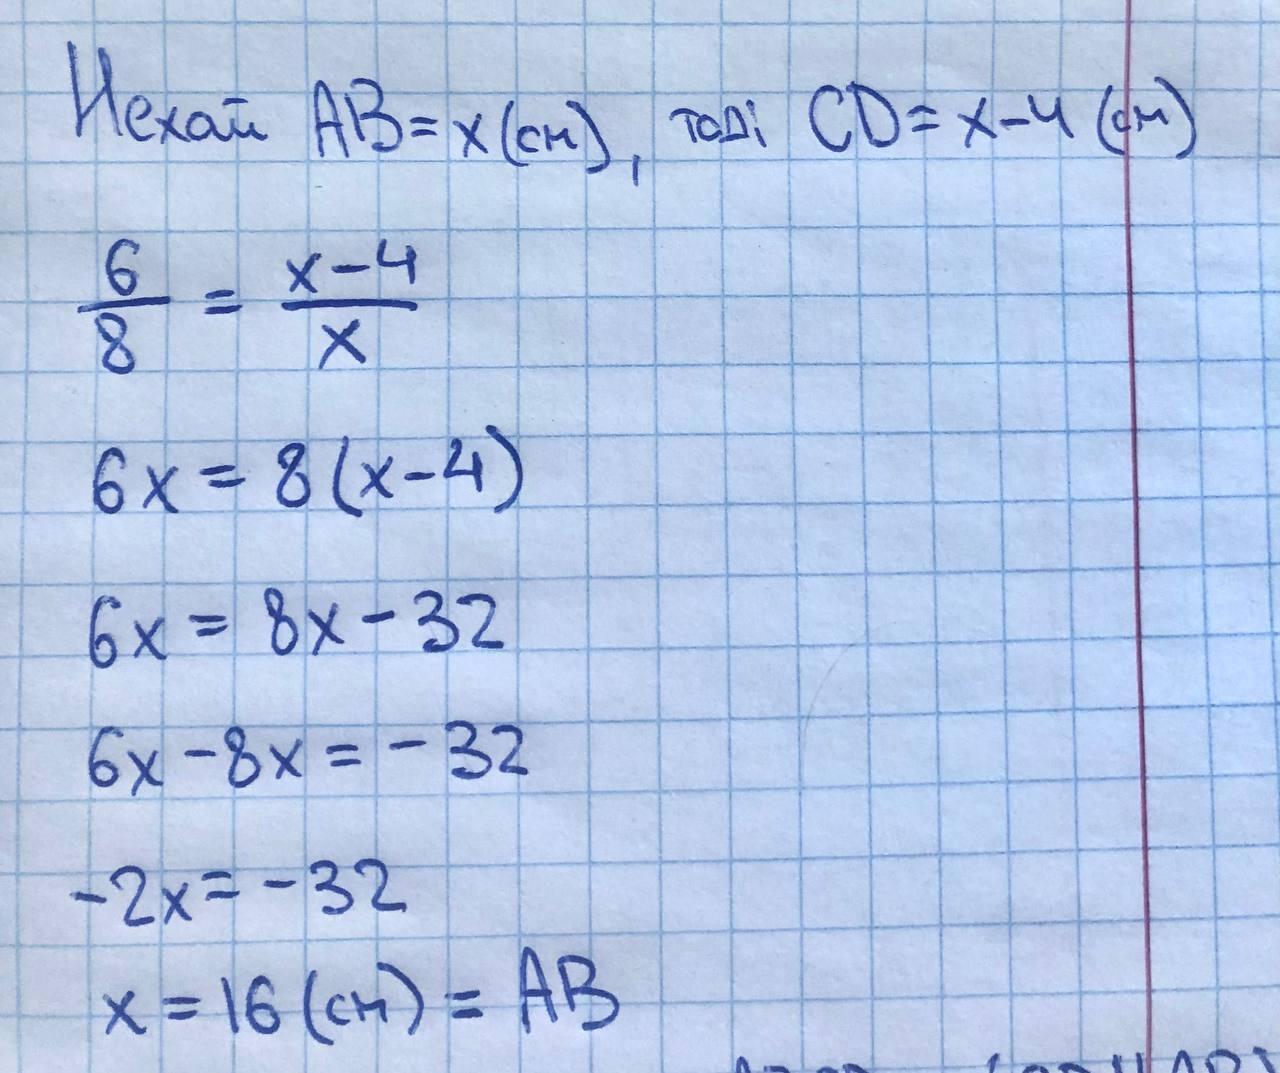 Нехай AB = x (см), тоді CD = x-4 (см)
6/8 = x-4/x
6x = 8(x-4)
6x = 8x - 32
6x - 8x = -32
-2x = -32
x = 16 (см) = AB